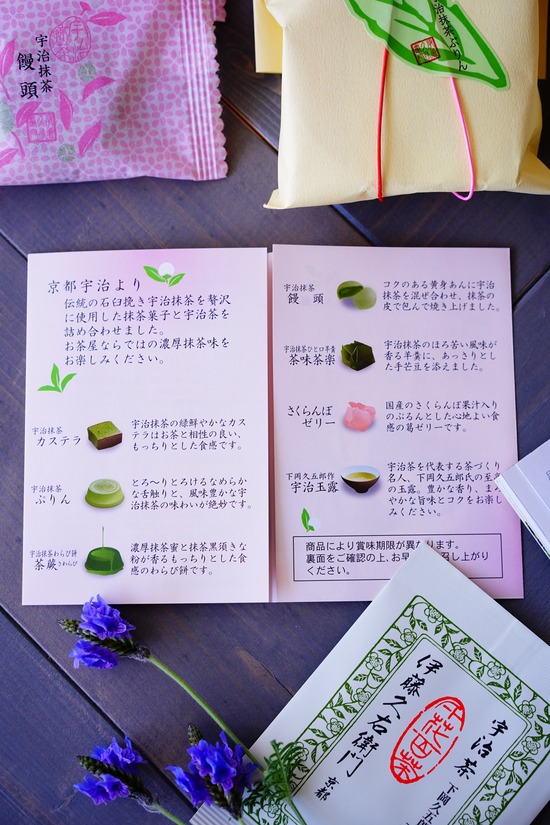 宇治抹茶
饅頭
宇治抹茶ぷりん
京都宇治より
伝統の石臼挽き宇治抹茶を贅沢
に使用した抹茶菓子と宇治茶を
詰め合わせました。
お茶屋ならではの濃厚抹茶味を
お楽しみください。
宇治抹茶
カステラ
宇治抹茶の緑鮮やかなカス
テラはお茶と相性の良い、
もっちりとした食感です。
宇治抹茶
ぷりん
とろ〜りとろけるなめらか
な舌触りと、風味豊かな宇
治抹茶の味わいが絶妙です。
宇治抹茶わらび餅
茶蕨さわらび
濃厚抹茶蜜と抹茶黒須きな
粉が香るもっちりとした食
感のわらび餅です。
宇治抹茶
饅頭
コクのある黄身あんに宇治
抹茶を混ぜ合わせ、抹茶の
皮で包んで焼き上げました。
宇治抹茶ひとロ羊羹
茶味茶楽
宇治抹茶のほろ苦い風味が
香る羊羹に、あっさりとし
た手芒豆を添えました。
さくらんぼ
ゼリー
国産のさくらんぼ果汁入り
のぷるんとした心地よい食
感の葛ゼリーです。
下岡久五郎作
宇治玉露
宇治茶を代表する茶づくり
名人、下岡久五郎氏の至高
の玉露。豊かな香り、まろ
やかな旨味とコクをお楽し
みください。
商品により賞味期限が異なります。
裏面をご確認の上、お早 召し上がり
ください。
宇治茶
下岡久五
伊藤久右衛門
京都